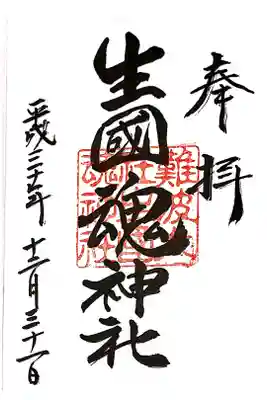 奉拝
生國魂神社
平成三十年十二月三十一日